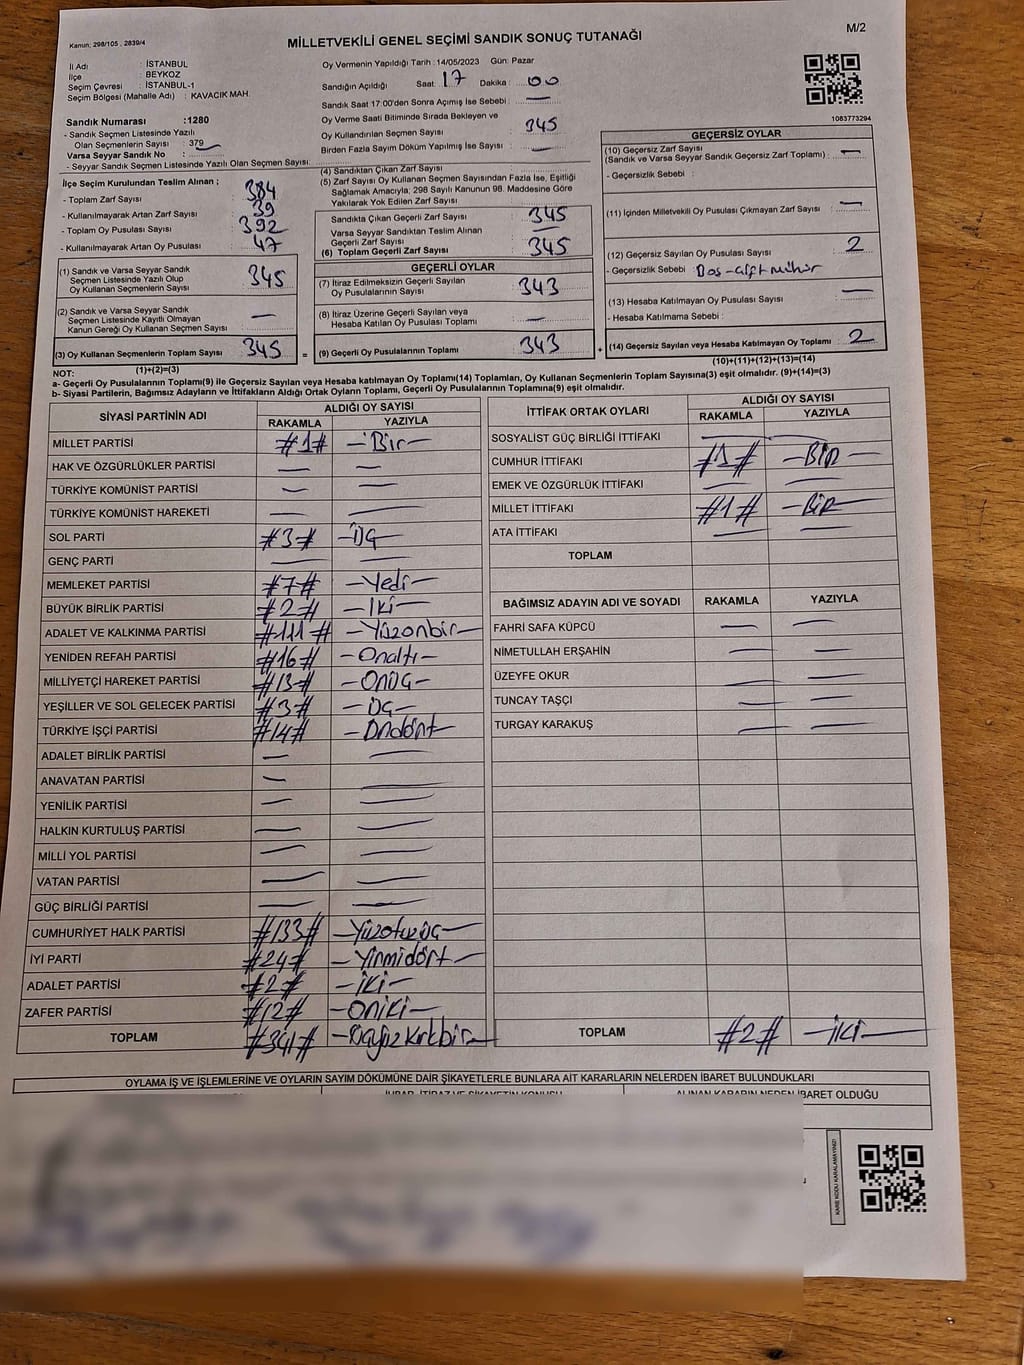 Kanun: 298/105 , 2839/4
M/2
MİLLETVEKİLİ GENEL SEÇİMİ SANDIK SONUÇ TUTANAĞI
İl Adı : İSTANBUL
İlçe : BEYKOZ
Seçim Çevresi : İSTANBUL-1
Seçim Bölgesi (Mahalle Adı) : KAVACIK MAH.
Sandık Numarası :1280
- Sandık Seçmen Listesinde Yazılı
Olan Seçmenlerin Sayısı : 379
Varsa Seyyar Sandık No :
- Seyyar Sandık Seçmen Listesinde Yazılı Olan Seçmen Sayısı:
Oy Vermenin Yapıldığı Tarih : 14/05/2023 Gün: Pazar
Sandığın Açıldığı Saat : 17 Dakika : 00
Sandık Saat 17:00'den Sonra Açımış İse Sebebi : —
Oy Verme Saati Bitiminde Sırada Bekleyen ve
Oy Kullandırılan Seçmen Sayısı : 345
Birden Fazla Sayım Döküm Yapılmış İse Sayısı : —
1083773294
İlçe Seçim Kurulundan Teslim Alınan ;
- Toplam Zarf Sayısı : 384
- Kullanılmayarak Artan Zarf Sayısı : 39
- Toplam Oy Pusulası Sayısı : 392
- Kullanılmayarak Artan Oy Pusulası : 47
(1) Sandık ve Varsa Seyyar Sandık
Seçmen Listesinde Yazılı Olup
Oy Kullanan Seçmenlerin Sayısı : 345
(2) Sandık ve Varsa Seyyar Sandık
Seçmen Listesinde Kayıtlı Olmayan
Kanun Gereği Oy Kullanan Seçmen Sayısı : —
(3) Oy Kullanan Seçmenlerin Toplam Sayısı 345 =
(1)+(2)=(3)
(4) Sandıktan Çıkan Zarf Sayısı :
(5) Zarf Sayısı Oy Kullanan Seçmen Sayısından Fazla İse, Eşitliği
Sağlamak Amacıyla; 298 Sayılı Kanunun 98. Maddesine Göre
Yakılarak Yok Edilen Zarf Sayısı :
Sandıkta Çıkan Geçerli Zarf Sayısı : 345
Varsa Seyyar Sandıktan Teslim Alınan
Geçerli Zarf Sayısı : —
(6) Toplam Geçerli Zarf Sayısı : 345
GEÇERLİ OYLAR
(7) İtiraz Edilmeksizin Geçerli Sayılan
Oy Pusulalarının Sayısı : 343
(8) İtiraz Üzerine Geçerli Sayılan veya
Hesaba Katılan Oy Pusulası Toplamı : —
(9) Geçerli Oy Pusulalarının Toplamı : 343 +
GEÇERSİZ OYLAR
(10) Geçersiz Zarf Sayısı
(Sandık ve Varsa Seyyar Sandık Geçersiz Zarf Toplamı) : —
- Geçersizlik Sebebi :
(11) İçinden Milletvekili Oy Pusulası Çıkmayan Zarf Sayısı : —
(12) Geçersiz Sayılan Oy Pusulası Sayısı : 2
- Geçersizlik Sebebi : Boş-çift mühür
(13) Hesaba Katılmayan Oy Pusulası Sayısı : —
- Hesaba Katılmama Sebebi :
(14) Geçersiz Sayılan veya Hesaba Katılmayan Oy Toplamı : 2
(10)+(11)+(12)+(13)=(14)
NOT:
a- Geçerli Oy Pusulalarının Toplamı(9) ile Geçersiz Sayılan veya Hesaba katılmayan Oy Toplamı(14) Toplamları, Oy Kullanan Seçmenlerin Toplam Sayısına(3) eşit olmalıdır. (9)+(14)=(3)
b- Siyasi Partilerin, Bağımsız Adayların ve İttifakların Aldığı Ortak Oyların Toplamı, Geçerli Oy Pusulalarının Toplamına(9) eşit olmalıdır.
SİYASİ PARTİNİN ADI
ALDIĞI OY SAYISI
RAKAMLA YAZIYLA
MİLLET PARTİSİ #1# -Bir-
HAK VE ÖZGÜRLÜKLER PARTİSİ — —
TÜRKİYE KOMÜNİST PARTİSİ — —
TÜRKİYE KOMÜNİST HAREKETİ — —
SOL PARTİ #3# -ÜÇ
GENÇ PARTİ — —
MEMLEKET PARTİSİ #7# -Yedi-
BÜYÜK BİRLİK PARTİSİ #2# -İki-
ADALET VE KALKINMA PARTİSİ #111# -Yüzonbir-
YENİDEN REFAH PARTİSİ #16# -Onaltı-
MİLLİYETÇİ HAREKET PARTİSİ #13# -Onüç-
YEŞİLLER VE SOL GELECEK PARTİSİ #3# -Üç-
TÜRKİYE İŞÇİ PARTİSİ #14# -Ondört-
ADALET BİRLİK PARTİSİ — —
ANAVATAN PARTİSİ — —
YENİLİK PARTİSİ — —
HALKIN KURTULUŞ PARTİSİ — —
MİLLİ YOL PARTİSİ — —
VATAN PARTİSİ — —
GÜÇ BİRLİĞİ PARTİSİ — —
CUMHURİYET HALK PARTİSİ #133# -Yüzotuzüç-
İYİ PARTİ #24# -Yirmidört-
ADALET PARTİSİ #2# -iki-
ZAFER PARTİSİ #12# -Oniki-
TOPLAM #341# -Üçyüzkırkbir-
İTTİFAK ORTAK OYLARI
ALDIĞI OY SAYISI
RAKAMLA YAZIYLA
SOSYALİST GÜÇ BİRLİĞİ İTTİFAKI — —
CUMHUR İTTİFAKI #1# -BİR-
EMEK VE ÖZGÜRLÜK İTTİFAKI — —
MİLLET İTTİFAKI #1# -BİR-
ATA İTTİFAKI — —
TOPLAM
BAĞIMSIZ ADAYIN ADI VE SOYADI RAKAMLA YAZIYLA
FAHRİ SAFA KÜPCÜ — —
NİMETULLAH ERŞAHİN — —
ÜZEYFE OKUR — —
TUNCAY TAŞÇI — —
TURGAY KARAKUŞ — —
TOPLAM #2# -iki-
OYLAMA İŞ VE İŞLEMLERİNE VE OYLARIN SAYIM DÖKÜMÜNE DAİR ŞİKAYETLERLE BUNLARA AİT KARARLARIN NELERDEN İBARET BULUNDUKLARI
İHBAR, İTİRAZ VE ŞİKAYETİN KONUSU
ALINAN KARARIN NEDEN İBARET OLDUĞU
KARE KODU KARALAMAYINIZ!